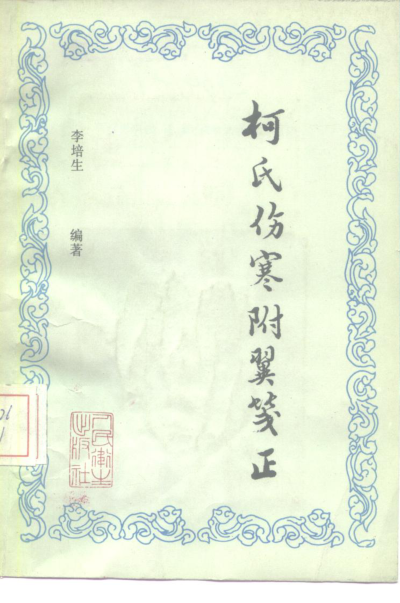 柯氏伤寒附翼笺正
李培生 编著
人民卫生出版社